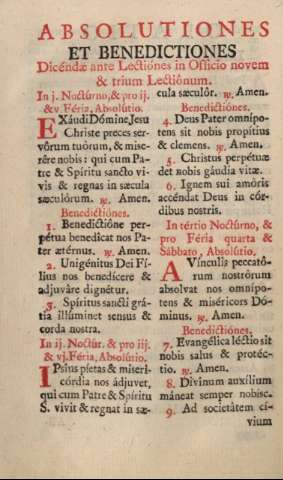 ABSOLUTIONES
ET BENEDICTIONES
Dicéndæ ante Lectiónes in Officio novem
& trium Lectiónum.
In j. Noctúrno, & pro ij.
& v. Féria, Absolútio.
EXáudi Dómine Jesu
Christe preces ser-
vórum tuórum, & mise-
rére nobis: qui cum Pa-
tre & Spíritu sancto vi-
vis & regnas in sæcula
sæculórum. ℟. Amen.
Benedictiónes.
1. Benedictióne per-
pétua benedícat nos Pa-
ter ætérnus. ℟. Amen.
2. Unigénitus Dei Fí-
lius nos benedícere &
adjuváre dignétur.
3. Spíritus sancti grá-
tia illúminet sensus &
corda nostra.
In ij. Noctúr. & pro iij.
& vj. Féria, Absolútio.
IPsíus píetas & miseri-
córdia nos ádjuvet,
qui cum Patre & Spíritu
S. vivit & regnat in sæ-
cula sæculór. ℟. Amen.
Benedictiónes.
4. Deus Pater omnípo-
tens sit nobis propítius
& clemens. ℟. Amen.
5. Christus perpétuæ
det nobis gáudia vitæ.
6. Ignem sui amóris
accéndat Deus in cór-
dibus nostris.
In tértio Noctúrno, &
pro Féria quarta &
Sábbato, Absolútio.
A Vínculis peccató-
rum nostrórum
absolvat nos omnípo-
tens & miséricors Dó-
minus. ℟. Amen.
Benedictiónes.
7. Evangélica léctio sit
nobis salus & protéc-
tio. ℟. Amen.
8. Divínum auxílium
máneat semper nobisc.
9. Ad societátem cí-
vium